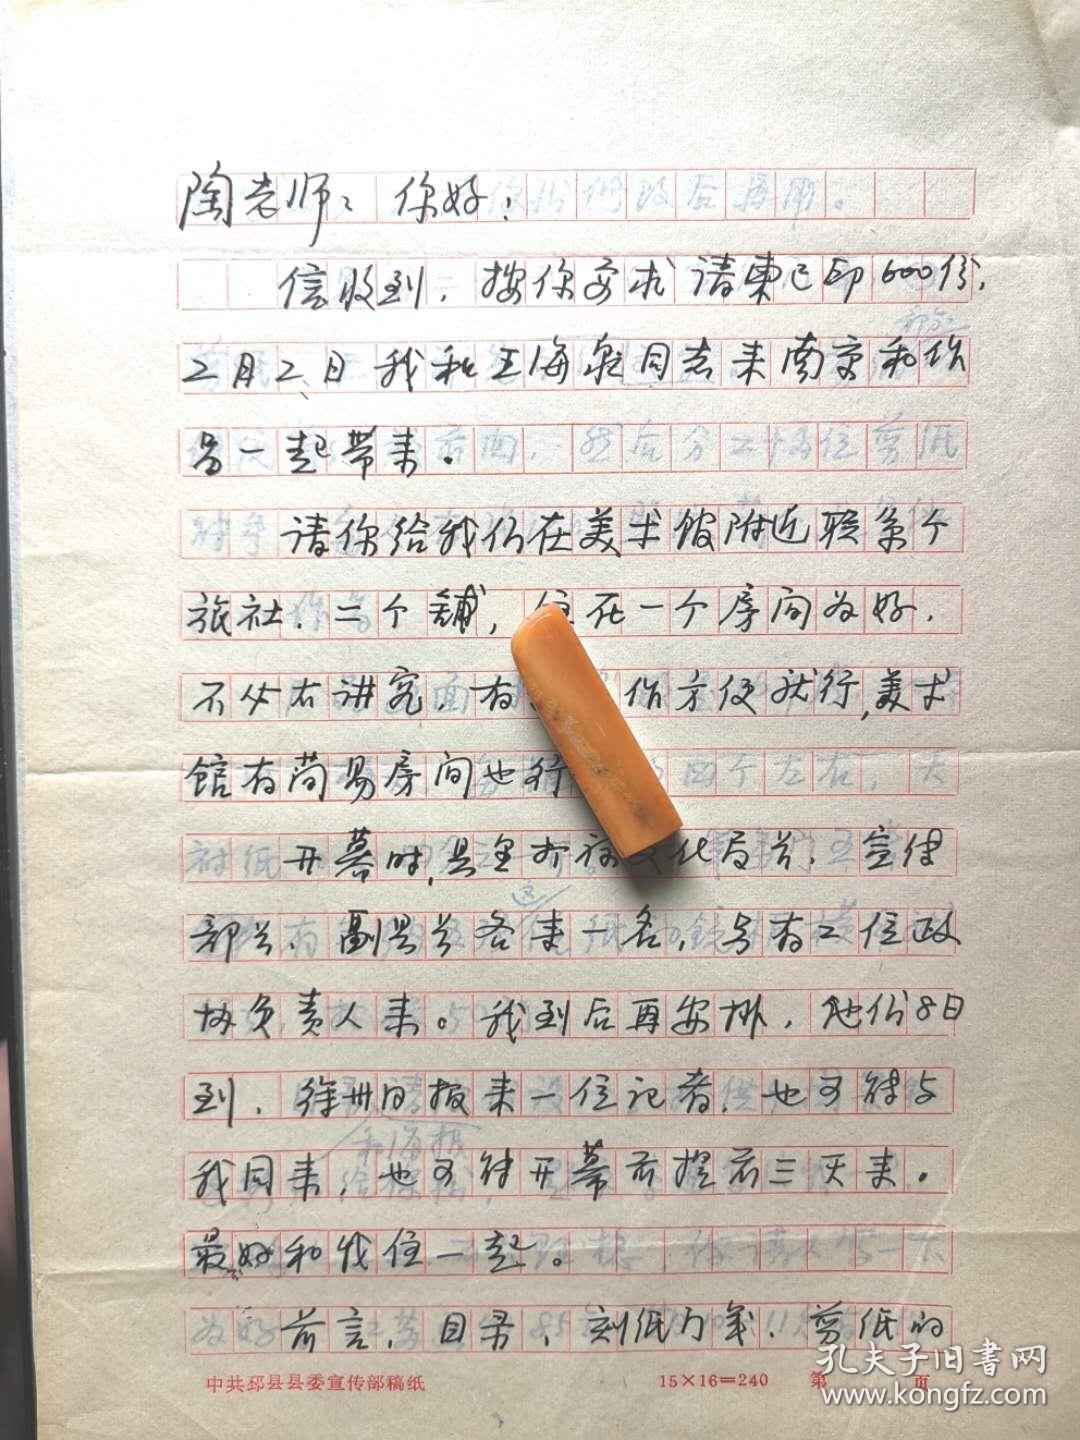 陶老师：你好！
信收到，按你要求请柬已印600份，
二月二日我和王海泉同志来南京和作
品一起带来。
请你给我们在美术馆附近联系个
旅社，二个铺，住在一个房间为好，
不必太讲究，有 作方便就行，美术
馆有简易房间也行
开幕时，县里打算文化局长、宣传
部长、副县长各来一名，另有二位政
协负责人来。我到后再安排，他们8日
到，徐州日报来一位记者，也可能与
我同来，也可能开幕前提前三天来。
最好和我住一起。
前言、目录、刻纸 、剪纸的
中共邳县县委宣传部稿纸 15×16=240 第 页
孔夫子旧书网
www.kongfz.com